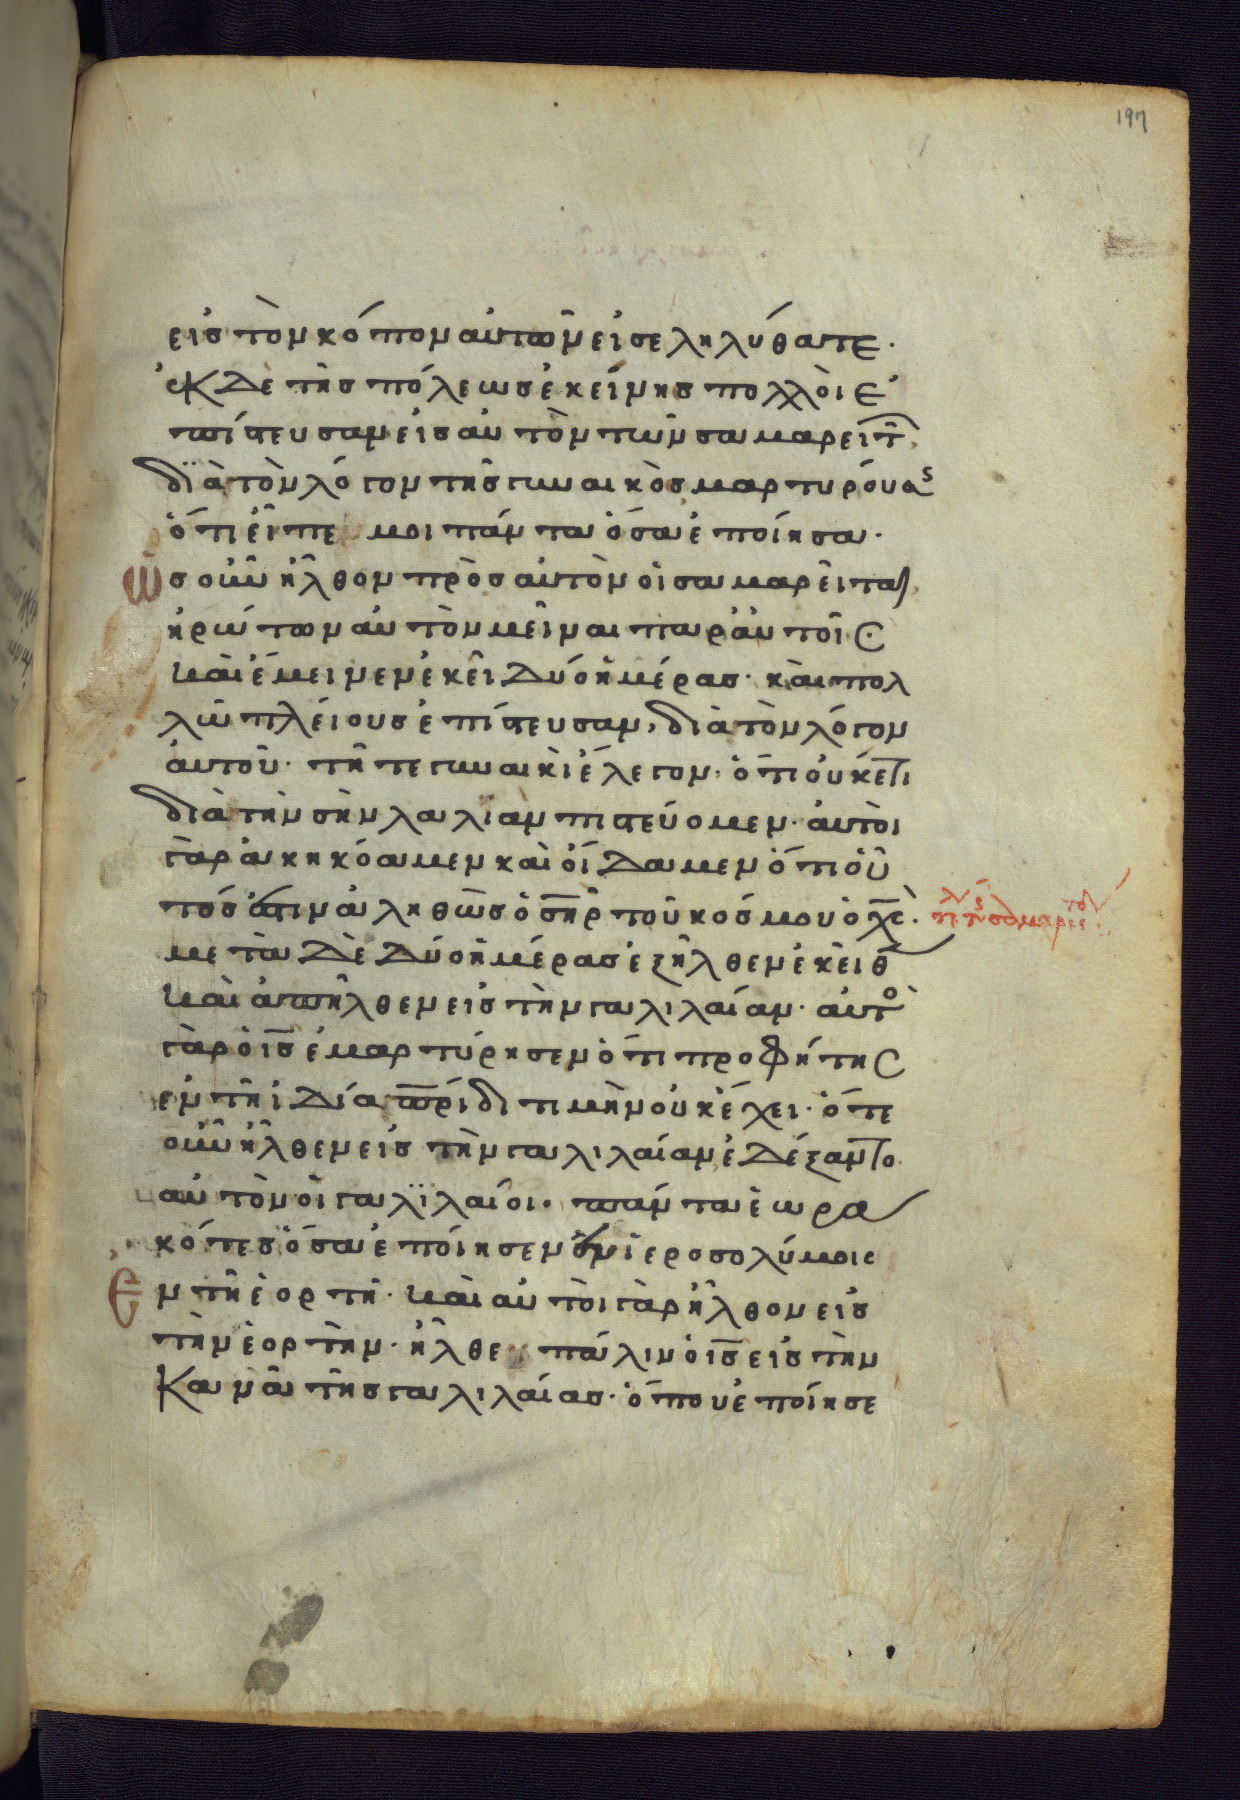 197
εἰς τὸν κόπον αὐτῶν εἰσεληλύθατε.
ἐκ δὲ τῆς πόλεως ἐκείνης πολλοὶ ἐ
πίστευσαν εἰς αὐτὸν τῶν σαμαρειτ
διὰ τὸν λόγον τῆς γυναικὸς μαρτυρούσς
ὅτι εἶπε μοι πάντα ὅσα ἐποίησα·
ὡς οὖν ἦλθον πρὸς αὐτὸν οἱ σαμαρεῖται
ἠρώτων αὐτὸν μεῖναι παρ' αὐτοῖς
καὶ ἔμεινεν ἐκεῖ δύο ἡμέρας· καὶ πολ
λῶ πλείους ἐπίστευσαν, διὰ τὸν λόγον
αὐτοῦ· τῆ τε γυναικὶ ἔλεγον· ὅτι οὐκέτι
διὰ τὴν σὴν λαλίαν πιστεύομεν· αὐτοὶ
γὰρ ἀκηκόαμεν καὶ οἴδαμεν ὅτι οὗ
τός ἐστιν ἀληθῶς ὁ σηρ τοῦ κόσμου ὁ χς.
μετὰ δὲ δύο ἡμέρας ἐξῆλθεν ἐκεῖθ
καὶ ἀπῆλθεν εἰς τὴν γαλιλαίαν· αὐτο
γὰρ ὁ ις ἐμαρτύρησεν ὅτι προφήτης
ἐν τῆ ἰδία πρίδι τιμὴν οὐκ ἔχει· ὅτε
οὖν ἦλθεν εἰς τὴν γαλιλαίαν ἐδέξαντο
αὐτὸν οἱ γαλϊλαίοι. πάντα ἑωρα
κότες ὅσα ἐποίησεν ἐν ἱεροσολύμοις
ἐν τῆ ἑορτῆ· καὶ αὐτοὶ γὰρ ἦλθον εἰς
τὴν ἑορτὴν· ἦλθε πάλιν ὁ ις εἰς τὴν
Κανᾶ τῆς γαλιλαίας· ὅπου ἐποίησε